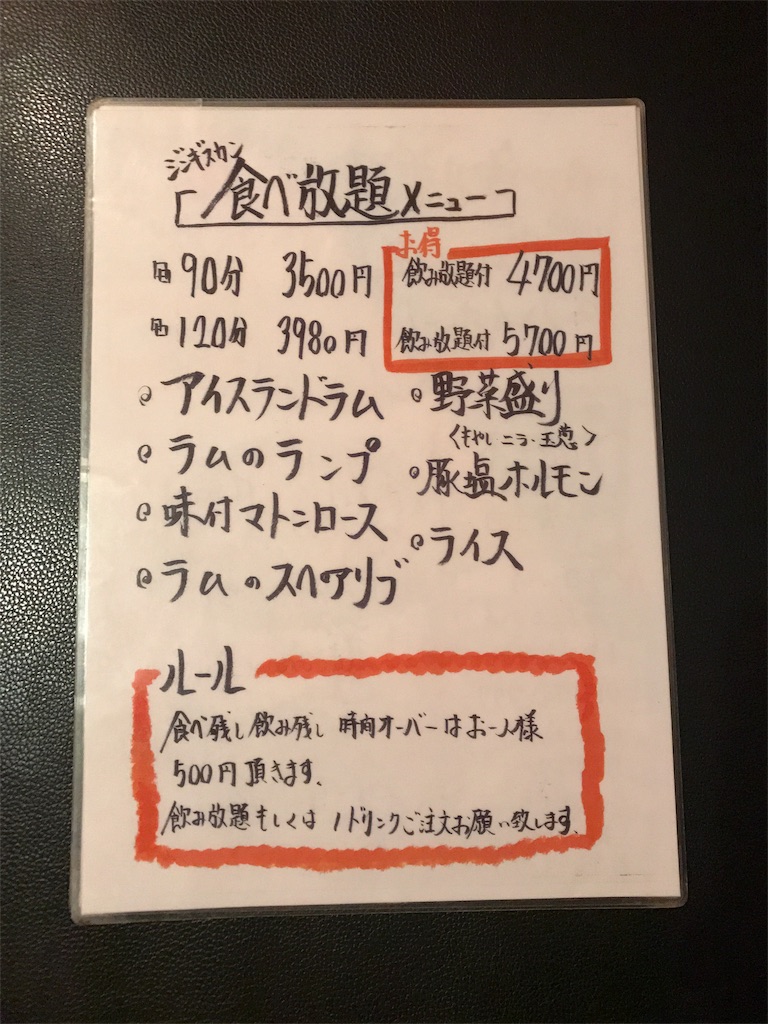 ジンギスカン
食べ放題メニュー
90分 3500円
お得
飲み放題付 4700円
120分 3980円
飲み放題付 5700円
アイスランドラム
ラムのランプ
味付マトンロース
ラムのスペアリブ
野菜盛り
〈もやし・ニラ・玉葱〉
豚塩ホルモン
ライス
ルール
食べ残し飲み残し 時間オーバーはお一人様
500円頂きます。
飲み放題もしくは1ドリンクご注文お願い致します。